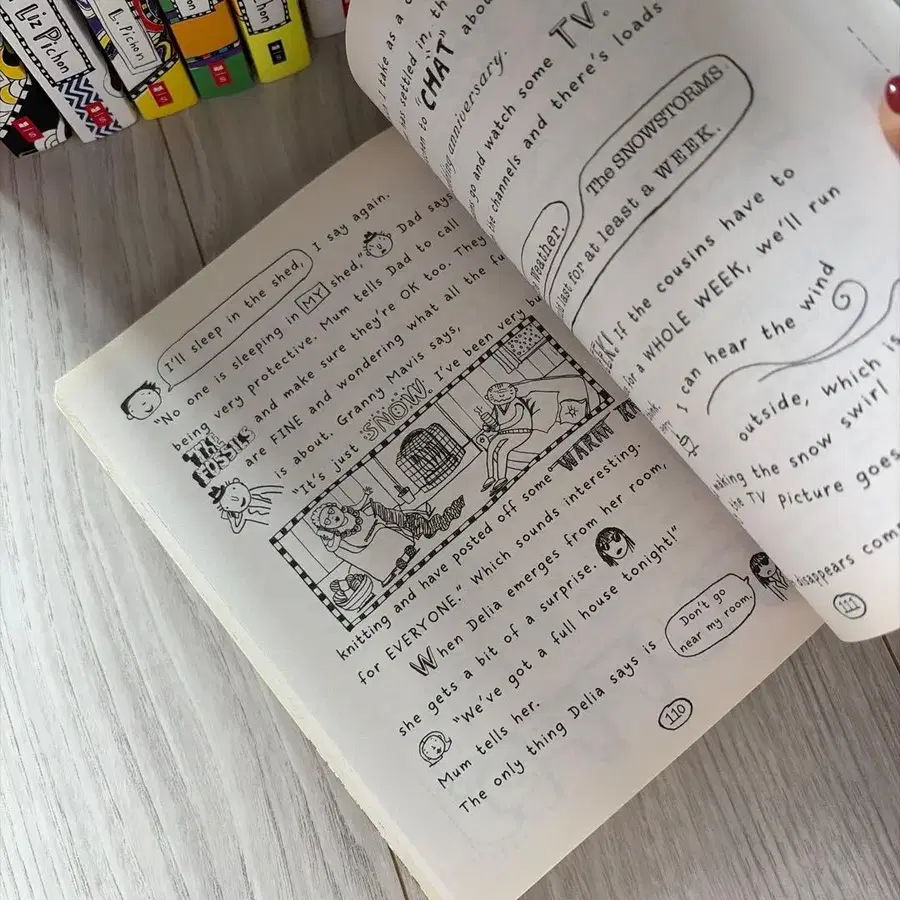 Liz Pichon
L. Pichon
"I'll sleep in the shed, I say again.
"No one is sleeping in MY shed," Dad says
being very protective. Mum tells Dad to call
THE FOSSILS and make sure they're OK too. They
are FINE and wondering what all the fu
is about. Granny Mavis says,
"It's just SNOW. I've been very bu
knitting and have posted off some WARM KN
for EVERYONE." Which sounds interesting.
When Delia emerges from her room,
she gets a bit of a surprise.
"We've got a full house tonight!"
Mum tells her.
The only thing Delia says is
Don't go
near my room.
110
I take as a
has settled in, th
to "CHAT" abou
anniversary.
go and watch some TV.
the channels and there's loads
Weather.
The SNOWSTORMS
last for at least a WEEK.
If the cousins have to
for a WHOLE WEEK, we'll run
I can hear the wind
outside, which is
making the snow swirl
the TV picture goes
disappears comp
111